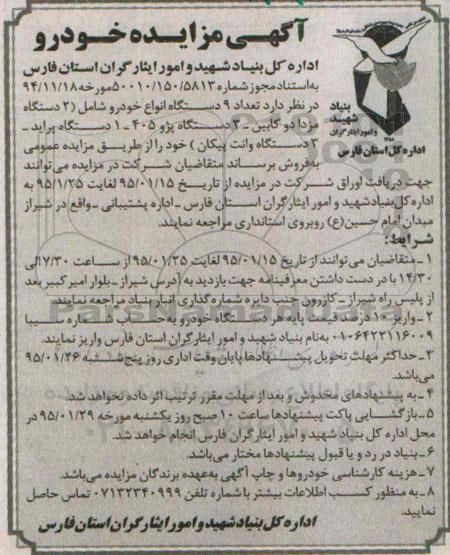 آگهی مزایده خودرو
اداره کل بنیاد شهید و امور ایثارگران استان فارس
به‌استناد مجوز شماره ۵۰۰۱۰/۱۵۰/۵۸۱۳ مورخه ۹۴/۱۱/۱۸
در نظر دارد تعداد ۹ دستگاه انواع خودرو شامل (۲ دستگاه
مزدا دو کابین ـ ۳ دستگاه پژو ۴۰۵ ـ ۱ دستگاه پراید ـ
۳ دستگاه وانت پیکان) خود را از طریق مزایده عمومی
به‌فروش برساند متقاضیان شرکت در مزایده می‌توانند
بنیاد
شهید
و امور ایثارگران
اداره کل استان فارس
جهت دریافت اوراق شرکت در مزایده از تاریخ ۹۵/۰۱/۱۵ لغایت ۹۵/۱/۲۵ به
اداره کل بنیاد شهید و امور ایثارگران استان فارس ـ اداره پشتیبانی ـ واقع در شیراز
میدان امام حسین(ع) روبروی استانداری مراجعه نمایند.
شرایط:
۱ـ متقاضیان می‌توانند از تاریخ ۹۵/۰۱/۱۵ لغایت ۹۵/۰۱/۲۵ از ساعت ۷/۳۰ الی
۱۴/۳۰ با در دست داشتن معرفینامه جهت بازدید به آدرس شیراز ـ بلوار امیر کبیر بعد
از پلیس راه شیراز ـ کازرون جنب دایره شماره‌گذاری انبار بنیاد مراجعه نمایند.
۲ـ واریز ۱۰ درصد قیمت پایه هر دستگاه خودرو به حساب شماره سیبا
۰۱۰۶۴۲۲۱۱۶۰۰۹ به‌نام بنیاد شهید و امور ایثارگران استان فارس واریز نمایند.
۳ـ حداکثر مهلت تحویل پیشنهادها پایان وقت اداری روز پنج‌شنبه ۹۵/۰۱/۲۶
می‌باشد.
۴ـ به پیشنهادهای مخدوش و بعد از مهلت مقرر ترتیب اثر داده نخواهد شد.
۵ـ بازگشایی پاکت پیشنهادها ساعت ۱۰ صبح روز یکشنبه مورخه ۹۵/۰۱/۲۹ در
محل اداره کل بنیاد شهید و امور ایثارگران فارس انجام خواهد شد.
۶ـ بنیاد در رد و یا قبول پیشنهادها مختار می‌باشد.
۷ـ هزینه کارشناسی خودروها و چاپ آگهی به‌عهده برندگان مزایده می‌باشد.
۸ـ به منظور کسب اطلاعات بیشتر با شماره تلفن ۰۷۱۳۲۳۴۰۹۹۹ تماس حاصل
نمایید.
اداره کل بنیاد شهید و امور ایثارگران استان فارس